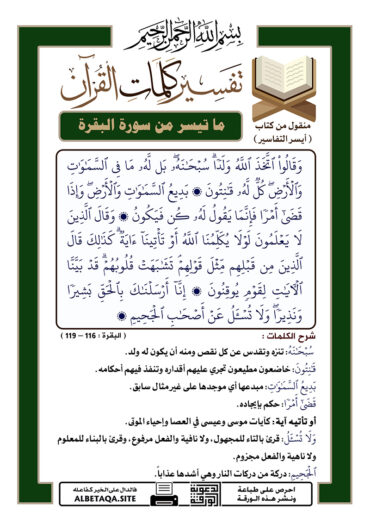 بسم الله الرحمن الرحيم
تفسير كلمات القرآن
منقول من كتاب
( أيسر التفاسير )
ما تيسر من سورة البقرة
وَقَالُوا۟ ٱتَّخَذَ ٱللَّهُ وَلَدًۭا ۗ سُبْحَـٰنَهُۥ ۖ بَل لَّهُۥ مَا فِى ٱلسَّمَـٰوَٰتِ
وَٱلْأَرْضِ ۖ كُلٌّۭ لَّهُۥ قَـٰنِتُونَ ۝ بَدِيعُ ٱلسَّمَـٰوَٰتِ وَٱلْأَرْضِ ۖ وَإِذَا
قَضَىٰٓ أَمْرًۭا فَإِنَّمَا يَقُولُ لَهُۥ كُن فَيَكُونُ ۝ وَقَالَ ٱلَّذِينَ
لَا يَعْلَمُونَ لَوْلَا يُكَلِّمُنَا ٱللَّهُ أَوْ تَأْتِينَآ ءَايَةٌۭ ۗ كَذَٰلِكَ قَالَ
ٱلَّذِينَ مِن قَبْلِهِم مِّثْلَ قَوْلِهِمْ ۘ تَشَـٰبَهَتْ قُلُوبُهُمْ ۗ قَدْ بَيَّنَّا
ٱلْـَٔايَـٰتِ لِقَوْمٍۢ يُوقِنُونَ ۝ إِنَّآ أَرْسَلْنَـٰكَ بِٱلْحَقِّ بَشِيرًۭا
وَنَذِيرًۭا ۖ وَلَا تُسْـَٔلُ عَنْ أَصْحَـٰبِ ٱلْجَحِيمِ ۝
شرح الكلمات : ( البقرة : 116 – 119 )
سُبْحَـٰنَهُۥ: تنزه وتقدس عن كل نقص ومنه أن يكون له ولد.
قَـٰنِتُونَ: خاضعون مطيعون تجري عليهم أقداره وتنفذ فيهم أحكامه.
بَدِيعُ ٱلسَّمَـٰوَٰتِ: مبدعها أي موجدها على غير مثال سابق.
قَضَىٰٓ أَمْرًۭا: حكم بإيجاده.
أو تأتيه آية: كآيات موسى وعيسى في العصا وإحياء الموتى.
وَلَا تُسْـَٔلُ: قرئ بالتاء للمجهول، ولا نافية والفعل مرفوع، وقرئ بالبناء للمعلوم
ولا ناهية والفعل مجزوم.
ٱلْجَحِيمِ: دركة من دركات النار وهي أشدها عذاباً.
احرص على طباعة
ونشر هذه الورقة
الدعوية
الورقة
فالدال على الخير كفاعله
ALBETAQA.SITE